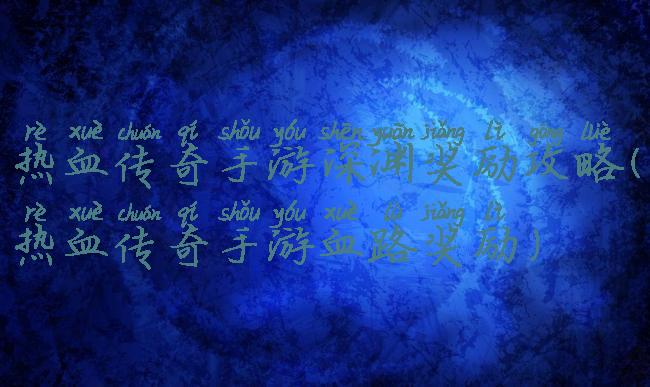 rè xuè chuán qí shǒu yóu shēn yuān jiǎng lì gōng lüè
热血传奇手游深渊奖励攻略(
rè xuè chuán qí shǒu yóu xuè lù jiǎng lì
热血传奇手游血路奖励)